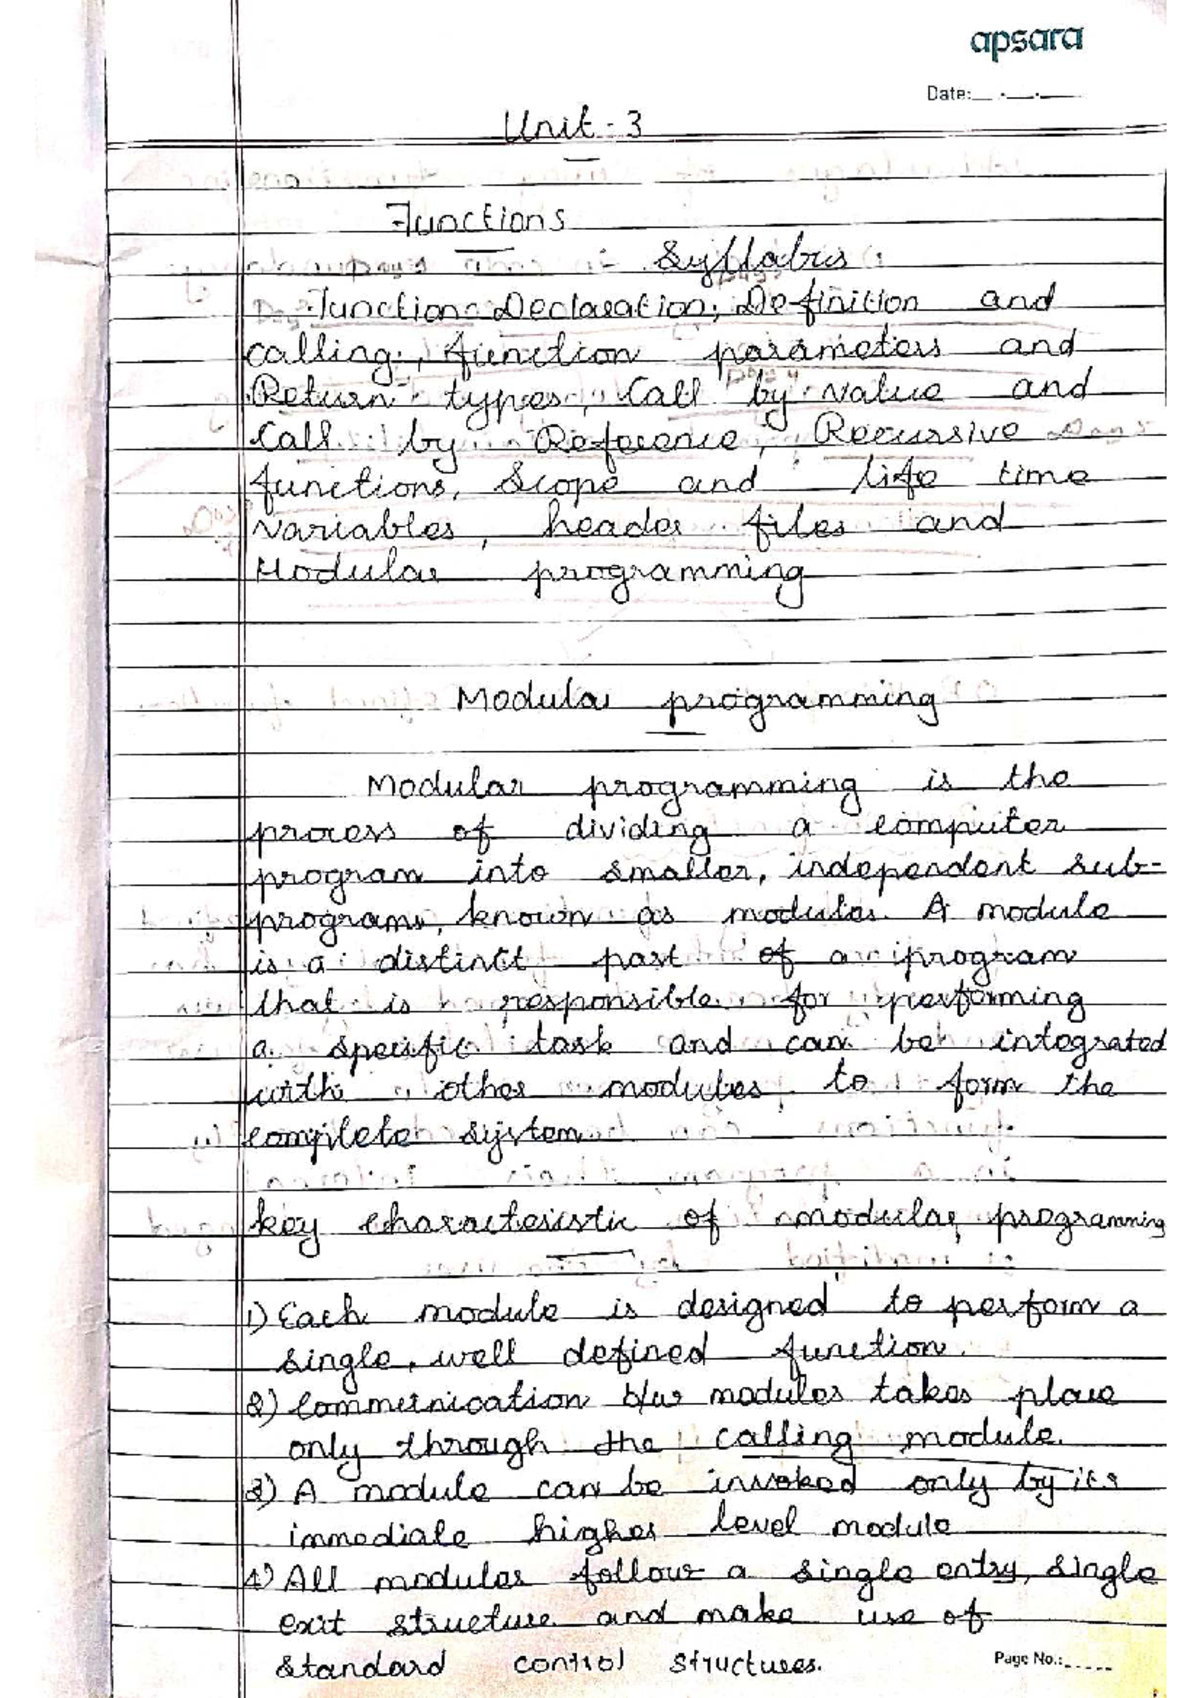 apsara
Date:__.__.__
Unit - 3
Functions
Syllabus :
Function Declaration, Definition and
calling, function parameters and
Return types, Call by value and
Call by Reference, Recursive
functions, Scope and life time
variables, header files and
Modular programming
Modular programming
Modular programming is the
process of dividing a computer
program into smaller, independent sub-
programs, known as modules. A module
is a distinct part of a program
that is responsible for performing
a specific task and can be integrated
with other modules to form the
complete system
key characteristic of modular programming
1) Each module is designed to perform a
single, well defined function.
2) Communication b/w modules takes place
only through the calling module.
3) A module can be invoked only by its
immediate higher level module
4) All modules follow a single entry, single
exit structure and make use of
standard control structures.
Page No.:.....